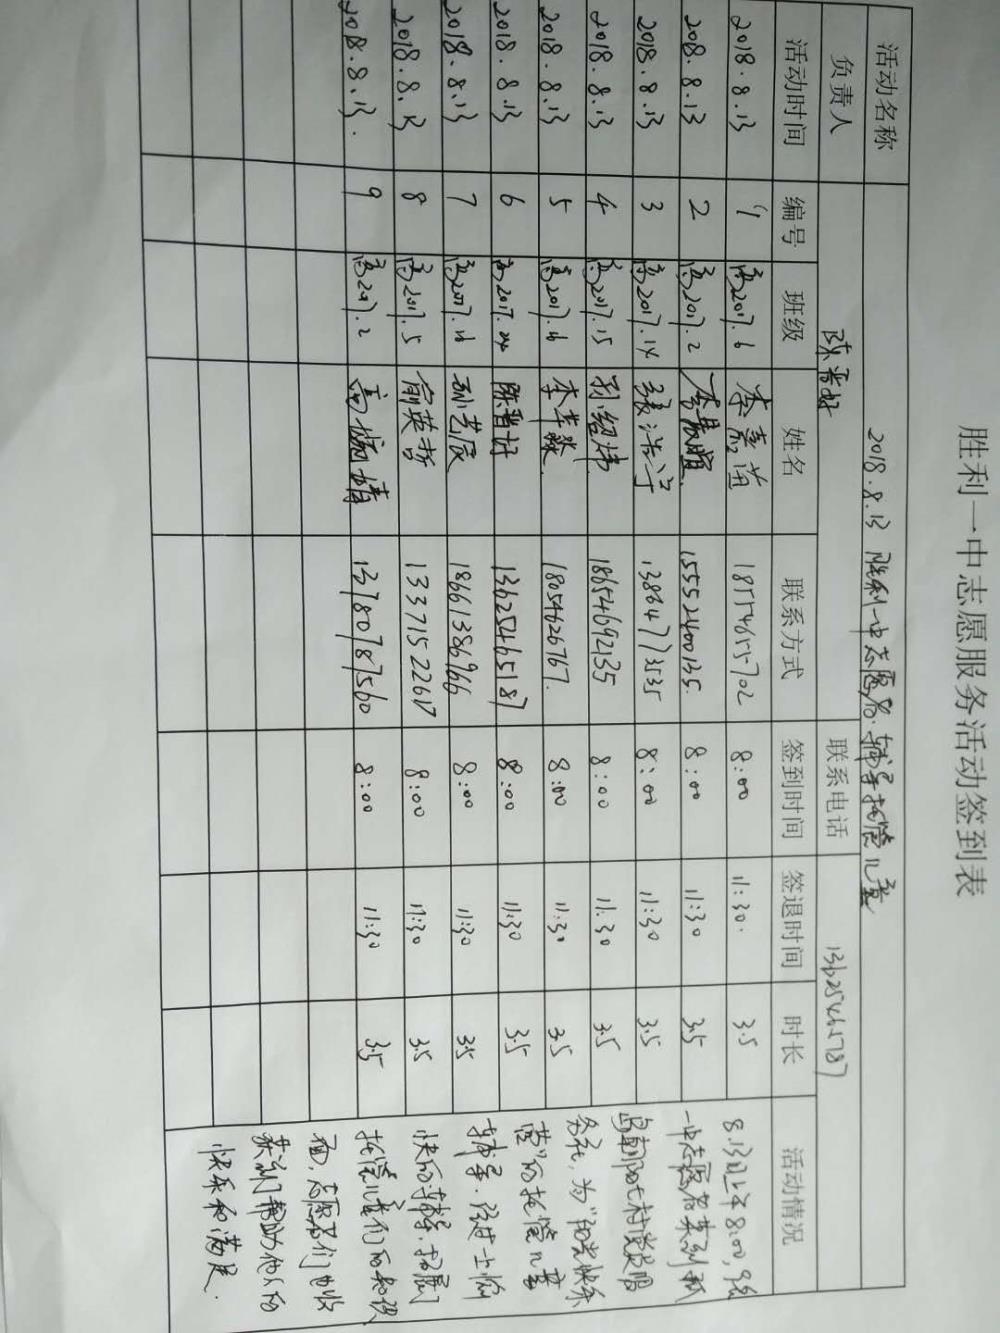 胜利一中志愿服务活动签到表
活动名称 2018.8.13 胜利一中志愿者辅导托管儿童
负责人 陈晋好 联系电话 13625465787
活动时间 编号 班级 姓名 联系方式 签到时间 签退时间 时长 活动情况
2018.8.13 1 高2017.6 李 苗 8:00 11:30 3.5
2018.8.13 2 高2017.2 李 15552400135 8:00 11:30 3.5
2018.8.13 3 高2017.14 张浩宇 8:00 11:30 3.5
2018.8.13 4 高2017.15 孙绍炜 18654692135 8:00 11:30 3.5
2018.8.13 5 高2017.16 李 18054626767 8:00 11:30 3.5
2018.8.13 6 高2017.24 陈晋好 8:00 11:30 3.5
2018.8.13 7 高2017.16 孙艺辰 18661386966 8:00 11:30 3.5
2018.8.13 8 高2017.5 俞英哲 13371522617 8:00 11:30 3.5
2018.8.13 9 高2017.2 高 婧 13780787560 8:00 11:30 3.5
8.13日上午8:00,
一中志愿者来到
朝阳七村党员服
务社,为“阳光快乐
营”的托管儿童
辅导.经过上午愉
快的辅导,拓展了
托管儿童们的知识
面,志愿者们也收
获到了帮助他人的
快乐和满足.